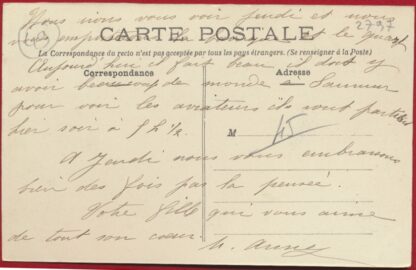 Nous irons vous voir jeudi et nous
2797
CARTE POSTALE
La Correspondance du recto n'est pas acceptée par tous les pays étrangers. (Se renseigner à la Poste)
Aujourd'hui il fait beau il doit y
Correspondance
Adresse
avoir beaucoup de monde a Saumur
pour voir les aviateurs ils sont partis
hier soir à 5 h 1/2
M
45
A Jeudi nous vous embrassons
bien des fois par la pensée.
Votre fille qui vous aime
de tout son cœur.